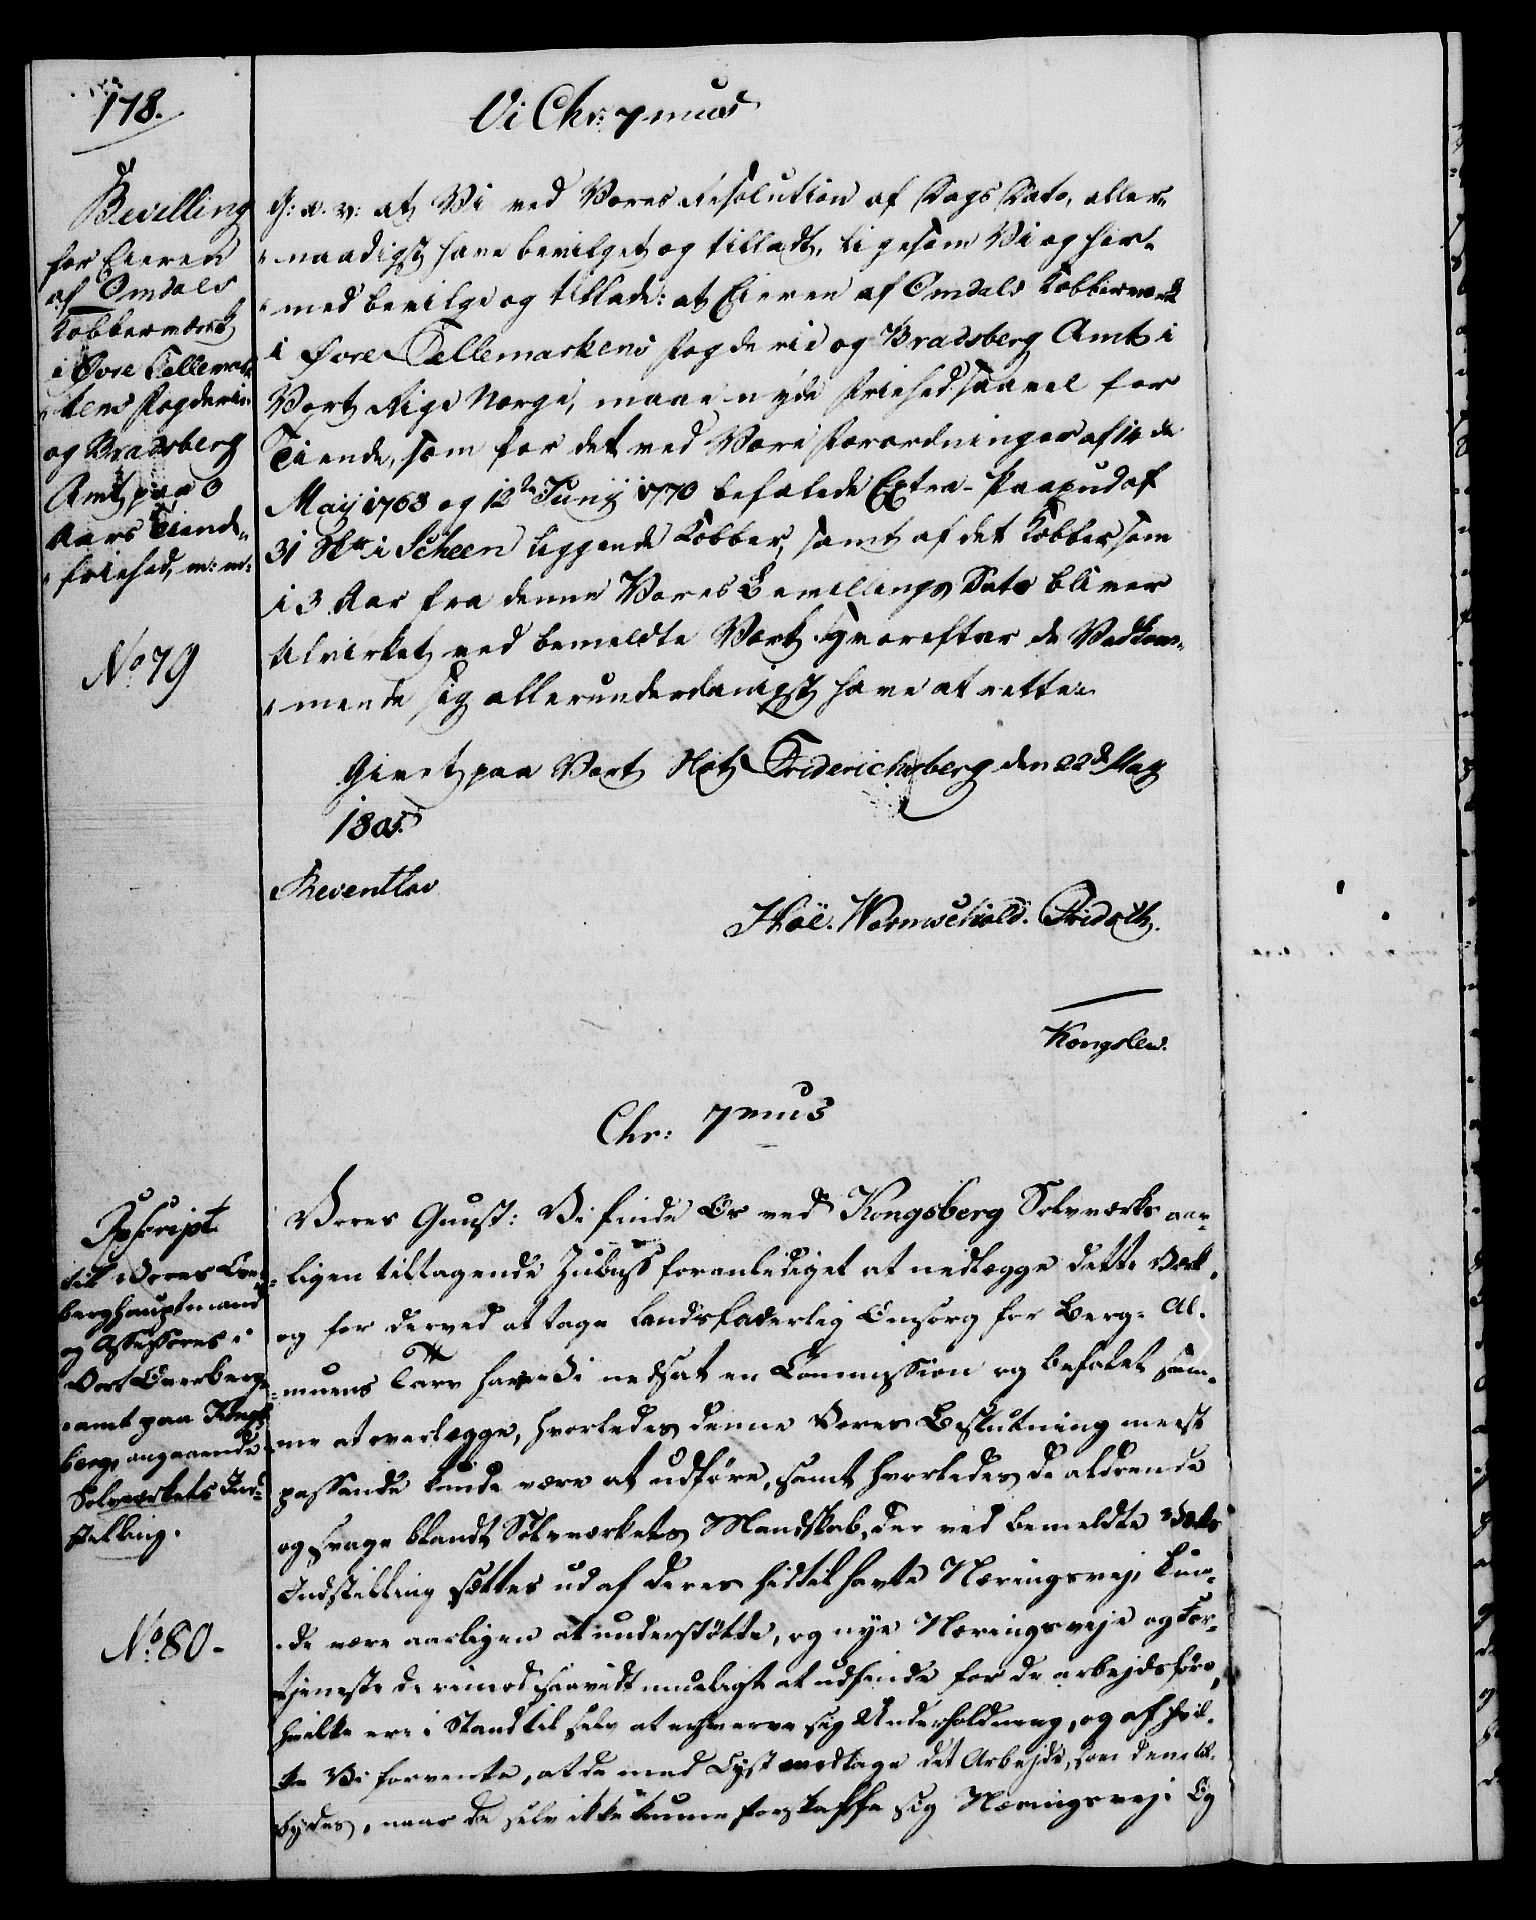 178.
Vi Chr: 7mus
Bevilling
for Eieren
af Omdals
Kobberværk
i Øvre Tellemar-
kens Fogderie
og Bradsberg
Amt paa 3
Aars Tiende-
friehed, m: m:
No 79
G: a. v: at Vi ved Vores Resolution af Dags Dato, aller-
naadigst have bevilget og tilladt, ligesom Vi og her-
med bevilge og tillade: at Eieren af Omdals Kobberværk
i Øvre Tellemarkens Fogderie og Bradsberg Amt i
Vort Rige Norge, maae nyde Friehed saavel for
Tiende, som for det ved Vore Forordninger af 14de
Maij 1768 og 12te Junij 1770 befalede Extra-Paabud af
31 Skt i Scheen liggende Kobber, samt af det Kobber som
i 3 Aar fra denne Vores Bevillings Dato bliver
tilvirket ved bemeldte Værk. Hvorefter de Vedkom-
mende sig allerunderdanigst have at rette.
Givet paa Vort Slot Friderichsberg den 22de Maij
1805.
Reventlov
Hoë. Wormschiold. Bridsth.
Kongslew.
Chr: 7mus
Rescript
til Vores Over-
berghauptmand
og Assessores i
Vort Overberg-
amt paa Kongs-
berg, angaaende
Sølvværkets Ind-
stilling.
No 80-
Vores Gunst: Vi finde Os ved Kongsberg Sølvværks aar-
ligen tiltagende Zubuss foranlediget at nedlægge dette Værk,
og for derved at tage landsfaderlig Omsorg for Berg-Al-
muens Tarv have Vi nedsat en Commission og befalet sam-
me at overlægge, hvorledes denne Vores Beslutning meest
passende kunde være at udføre, samt hvorledes de aldrende
og svage blandt Sølvværkets Mandskab, der ved bemeldte Værks
Indstilling sættes ud af deres hidtil havte Næringsvej, kun-
de være aarligen at understøtte, og nye Næringsveje og For-
tjeneste derimod saavidt mueligt at udfinde for de arbejdsføre,
hvilke ere i Stand til selv at erhverve sig Underholdning, og af hvil-
ke Vi forvente, at de med Lyst modtage det Arbejde, som dem til-
bydes, naar de selv ikke kunne forskaffe sig Næringsvej. Og